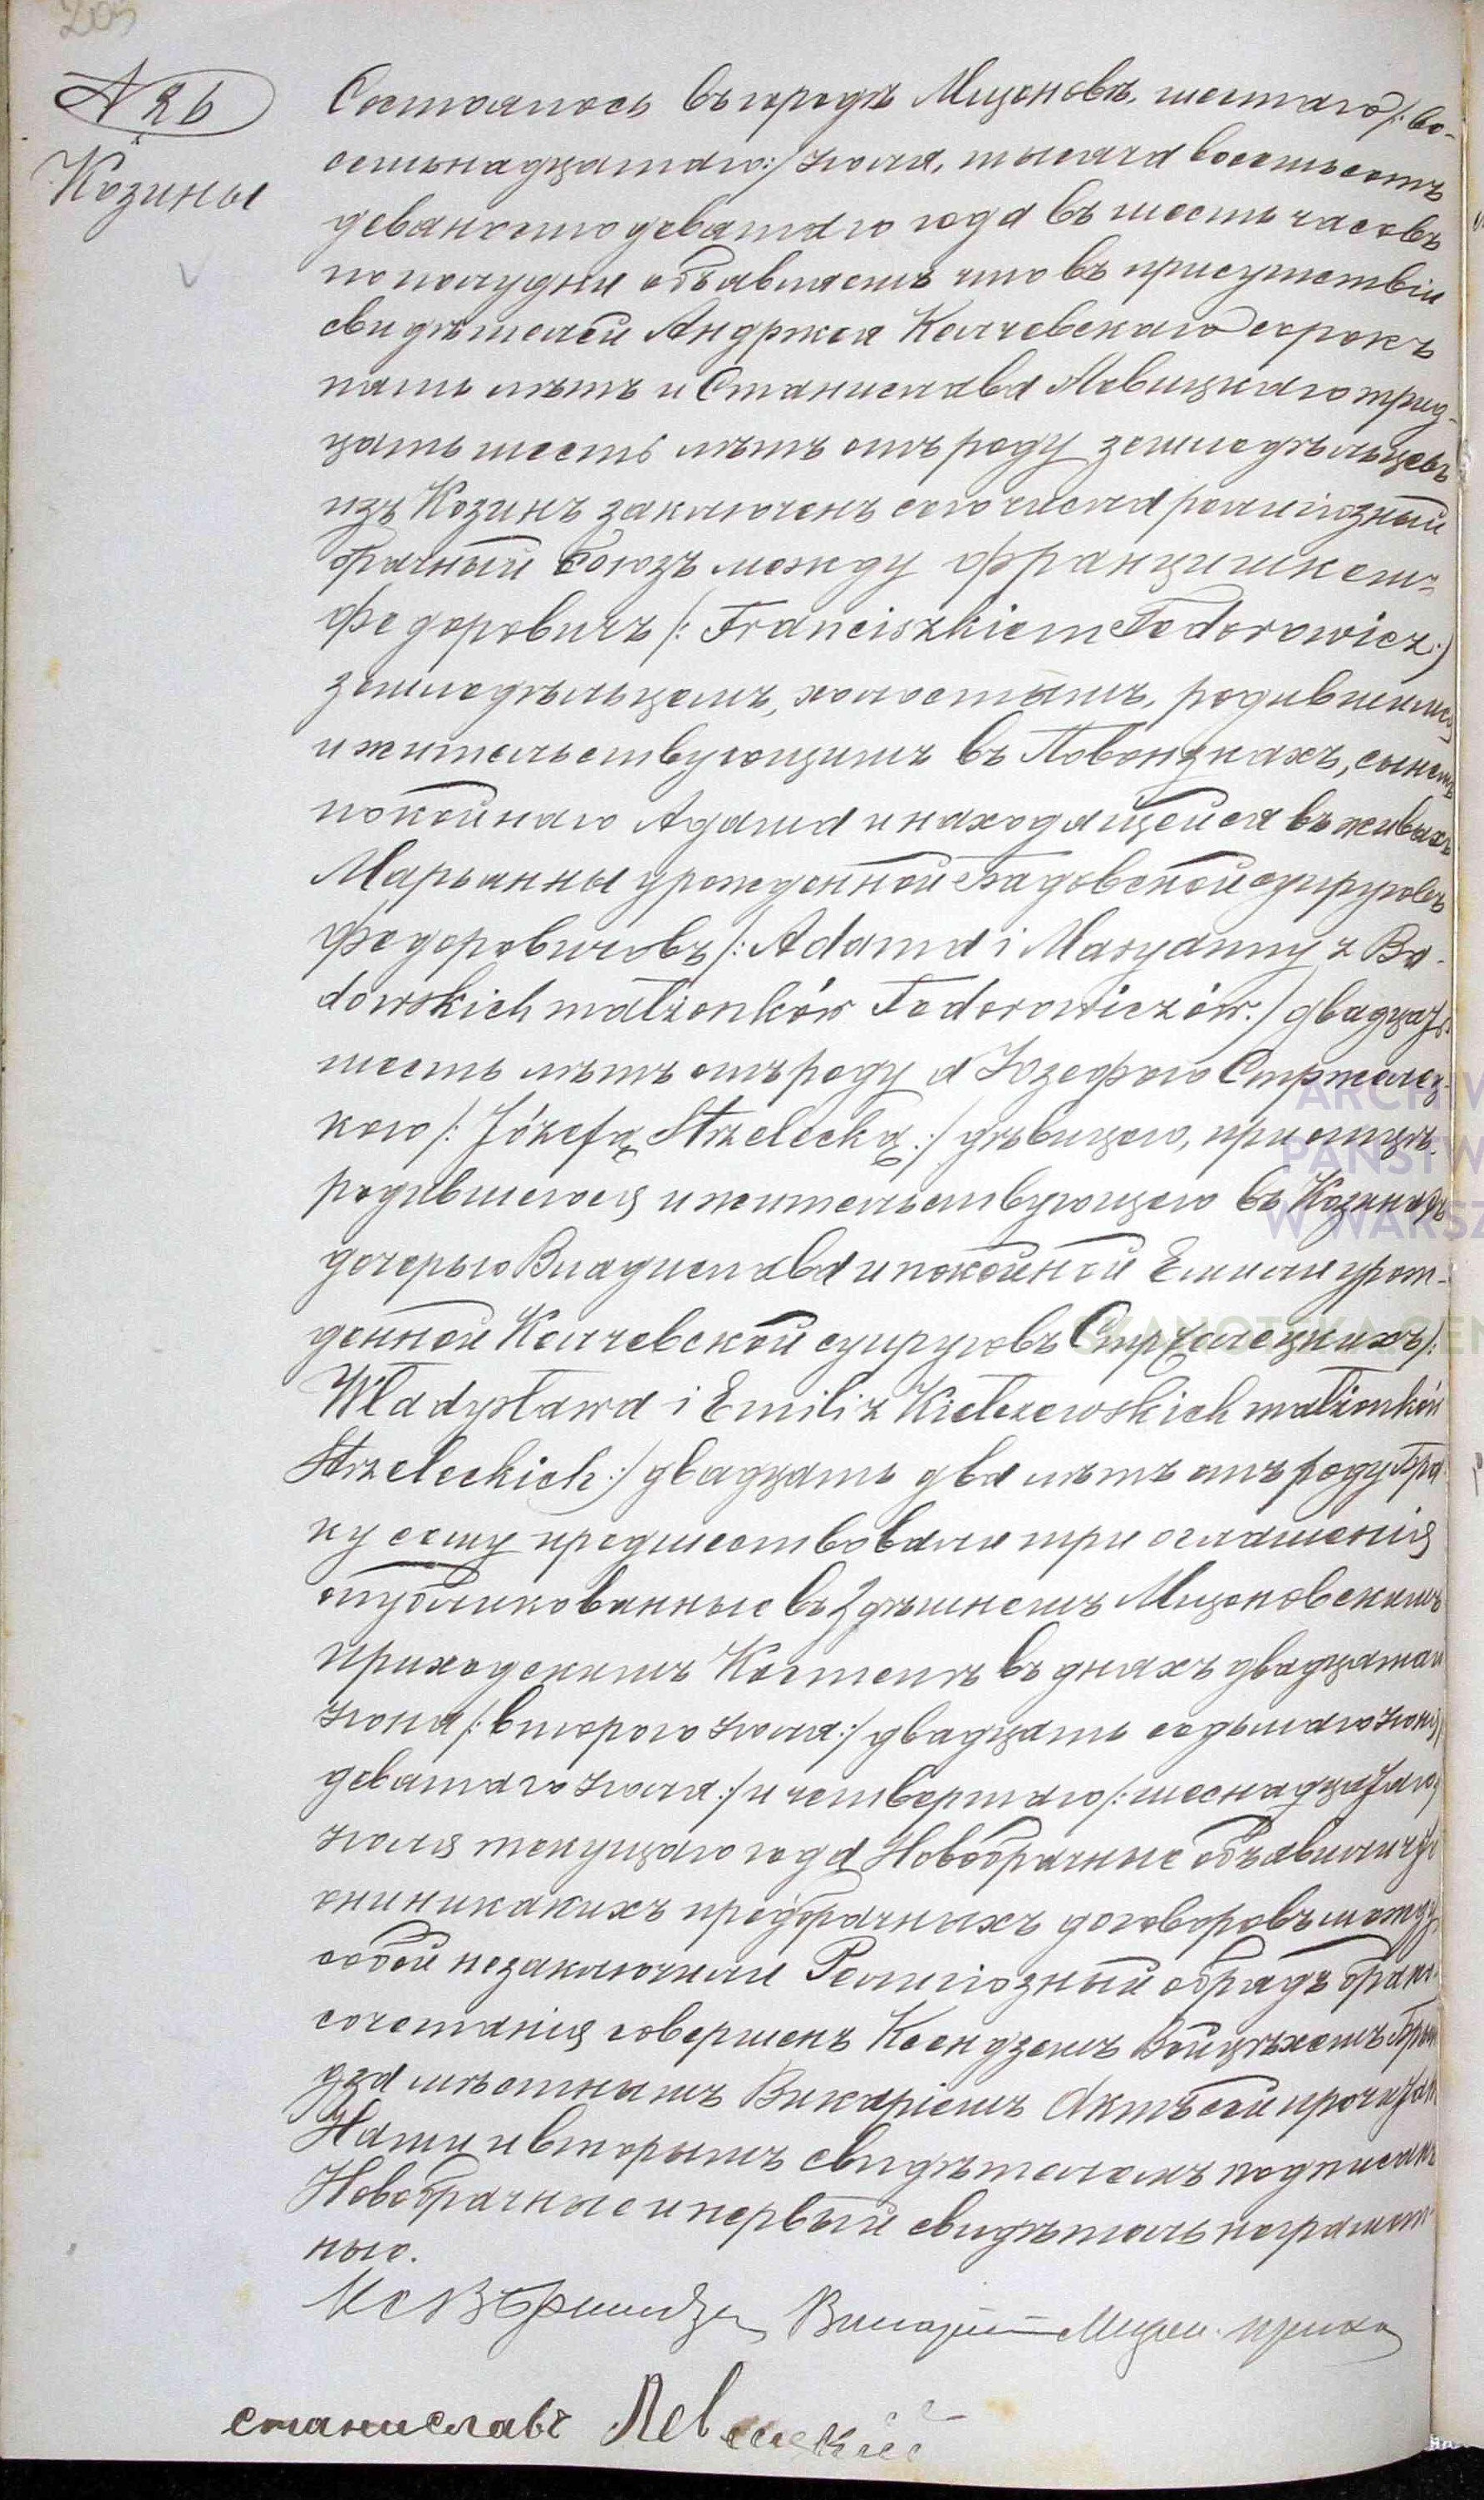 203
N 26
Козины
Состоялось въ городѣ Мщоновѣ, шестаго /: во-
семьнадцатаго :/ Іюля, тысяча восемьсотъ
девяносто девятаго года въ шесть часовъ
по полудни объявляемъ что въ присутствіи
свидѣтелей Андржея Келчевскаго сорокъ
пять лѣтъ и Станислава Левицкаго трид-
цать шесть лѣтъ отъ роду земледѣльцевъ
изъ Козинъ заключенъ сего числа религіозный
брачный союзъ между Францишкемъ
Федоровичъ /: Franciszkiem Fedorowicz :/
земледѣльцемъ, холостымъ, родившимся
и жительствующимъ въ Повонзкахъ, сынемъ
покойнаго Адама и находящейся въ живыхъ
Марьянны урожденной Бадовской супруговъ
Федоровичовъ /: Adama i Maryanny z Ba-
dowskich małżonków Fedorowiczów :/ двадцать
шесть лѣтъ отъ роду а Юзефою Стржелец-
кою /: Józefą Strzelecką :/ дѣвицею, при отцѣ
родившеюся и жительствующею въ Козинахъ
дочерью Владислава и покойной Емиліи урож-
денной Келчевской супруговъ Стржелецкихъ /:
Władysława i Emilii z Kiełczewskich małżonków
Strzeleckich :/ двадцать два лѣтъ отъ роду Бра-
ку сему предшествовали три оглашенія
опубликованные въ Здѣшнемъ Мщоновскимъ
приходскимъ Костелѣ въ дняхъ двадцатаго
Іюня /: втораго Іюля :/ двадцать седьмаго Іюня /:
девятаго Іюля :/ и четвертаго /: шеснадцатаго :/
Іюля текущаго года Новобрачные объявили что
они никакихъ предбрачныхъ договоровъ между
собой незаключили Религіозный обрядъ брако-
сочетанія совершенъ Ксендземъ Войцѣхемъ Брын-
дза мѣстнымъ Викаріемъ Актъ сей прочитанъ
Нами и вторымъ свидѣтелемъ подписанъ
Новобрачные и первый свидѣтель неграмот-
ные.
Кс В Брындза Викарій Мщон. прихо
станиславъ Левицкій
ARCHIW
PAŃSTW
W WARSZ
SKANOTEKA GEN